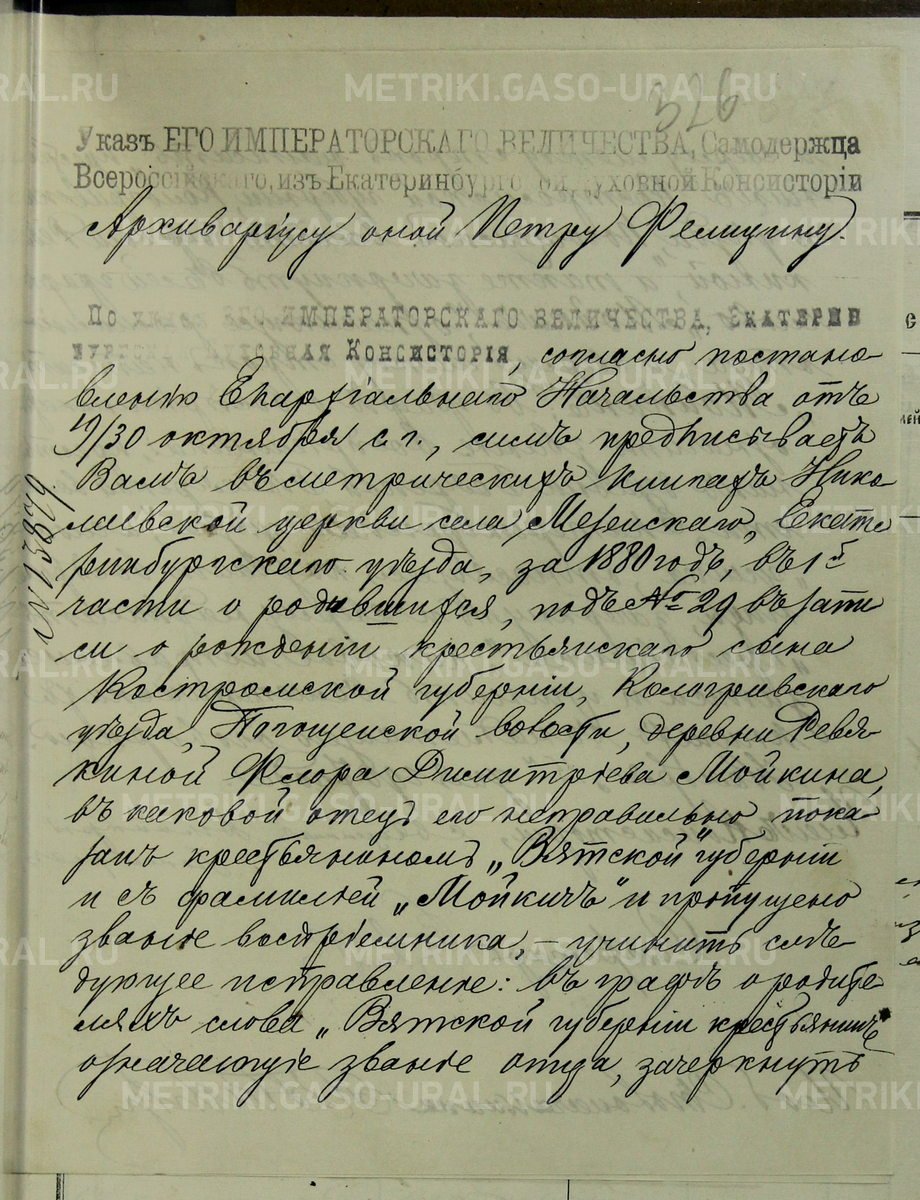 376
Указъ ЕГО ИМПЕРАТОРСКАГО ВЕЛИЧЕСТВА, Самодержца
Всероссійскаго, изъ Екатеринбургской Духовной Консисторіи
Архиваріусу оной Петру Фелицину.
По указу ЕГО ИМПЕРАТОРСКАГО ВЕЛИЧЕСТВА, Екатерин
бургская Духовная Консисторія, согласно постано-
вленію Епархіальнаго Начальства отъ
19/30 октября с. г., симъ предписываетъ
Вамъ въ метрическихъ книгахъ Нико-
лаевской церкви села Мезенскаго, Екате
ринбургскаго уѣзда, за 1880 годъ, въ 1й
части о родившихся, подъ № 29 въ запи
си о рожденіи крестьянскаго сына
Костромской губерніи, Кологривскаго
уѣзда, волости, деревни Ревя-
киной Флора Димитріева Мойкина,
въ каковой отецъ его неправильно пока-
занъ крестьяниномъ „Вятской" губерніи
и съ фамиліей „Мойкичъ" и пропущено
званіе воспріемника, – учинить слѣ-
дующее исправленіе: въ графѣ о родите
ляхъ слова „Вятской губерніи крестьянинъ"
означающіе званіе отца, зачеркнуть
№ 13879.
METRIKI.GASO-URAL.RU